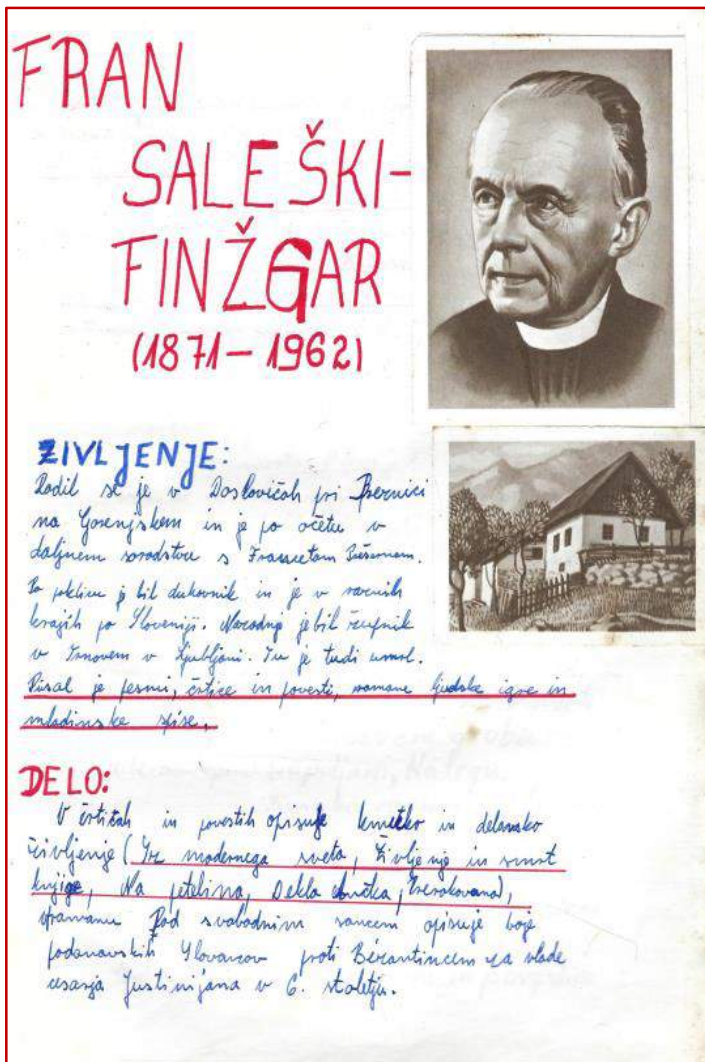 FRAN
SALEŠKI-
FINŽGAR
(1871-1962)
ŽIVLJENJE:
Rodil se je v Doslovičah pri Breznici
na Gorenjskem in je po očetu v
daljnem sorodstvu s Francetom Prešernom.
Po poklicu je bil duhovnik in je v raznih
krajih po Sloveniji. Nazadnje je bil župnik
v Trnovem v Ljubljani. Tu je tudi umrl.
Pisal je pesmi, črtice in povesti, romane ljudske igre in
mladinske spise.
DELO:
V črticah in povestih opisuje kmečko in delavsko
življenje (Iz modernega sveta, Življenje in smrt
knjige, Na petelina, Dekla Ančka, Prerokovana),
Pod svobodnim soncem opisuje boje
podonavskih Slovanov proti Bizantincem za vlade
cesarja Justinijana v 6. stoletju.